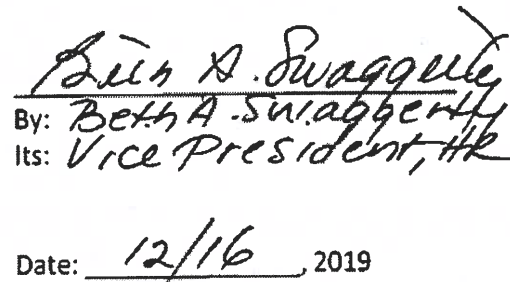 Beth A. Swaggerty
By: Beth A. Swaggerty
Its: Vice President, HR
Date: 12/16, 2019